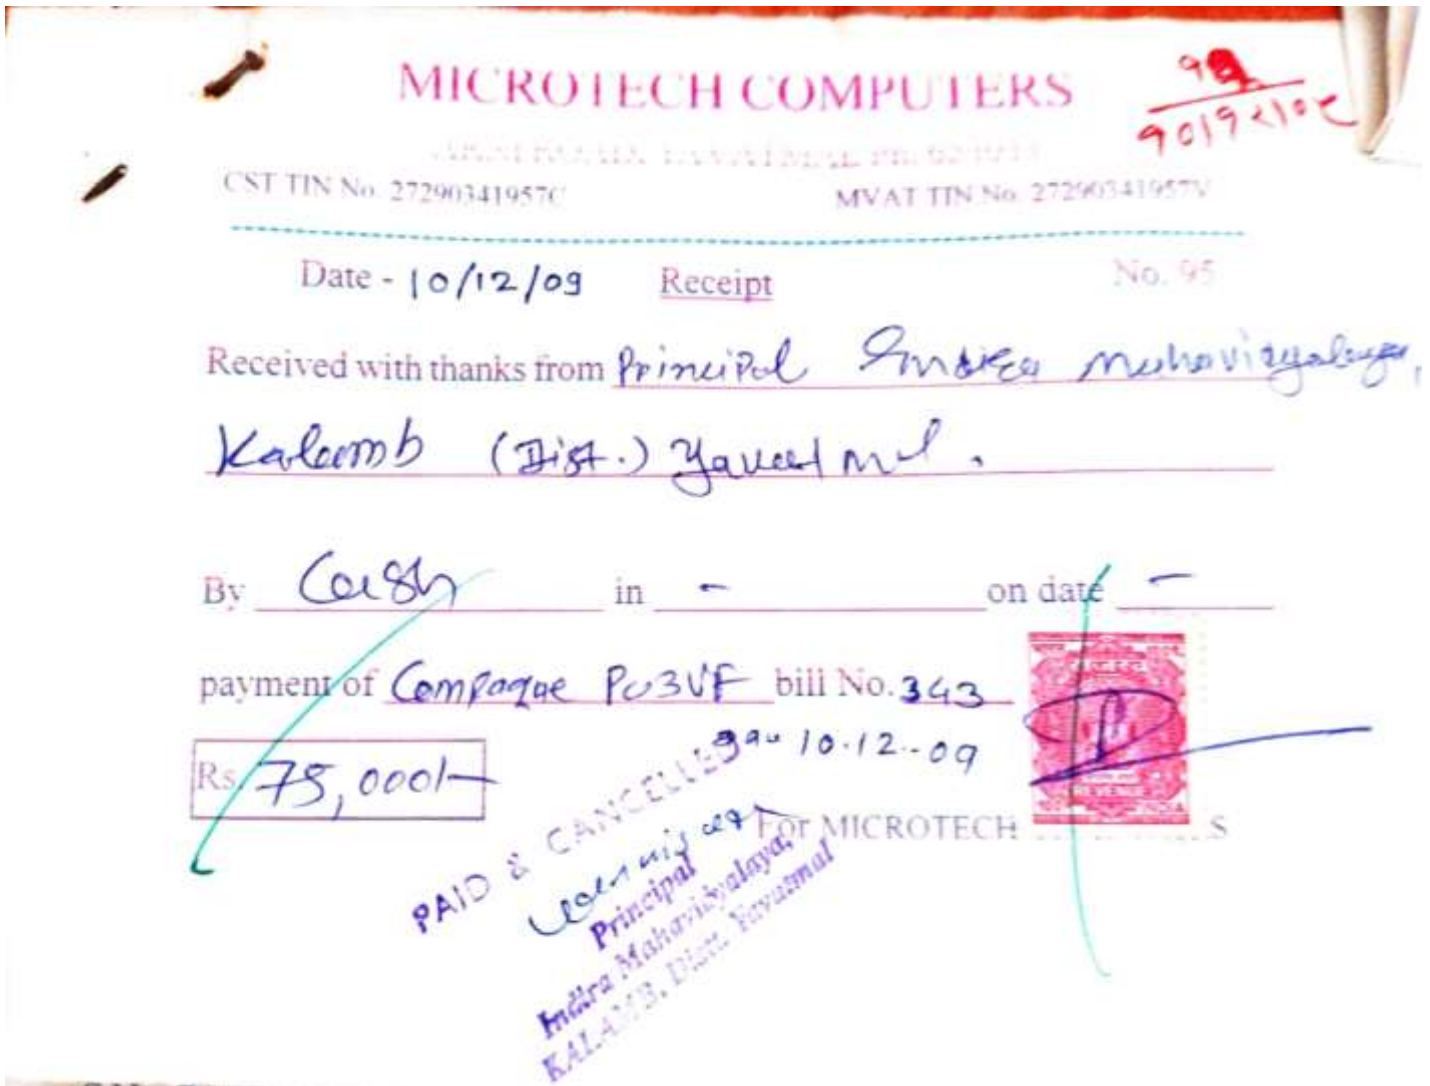 MICROTECH COMPUTERS
CST TIN No. 27290341957C MVAT TIN No. 27290341957V
Date - 10/12/09 Receipt No. 95
Received with thanks from Principal Indira Mahavidyalaya,
Kalamb (Dist.) Yavatmal.
By Cash in - on date -
payment of Compaque bill No. 343
10.12.-09
Rs. 75,000/-
PAID & CANCELLED
For MICROTECH S
Principal
Indira Mahavidyalaya,
KALAMB. Distt. Yavatmal
REVENUE
INDIA